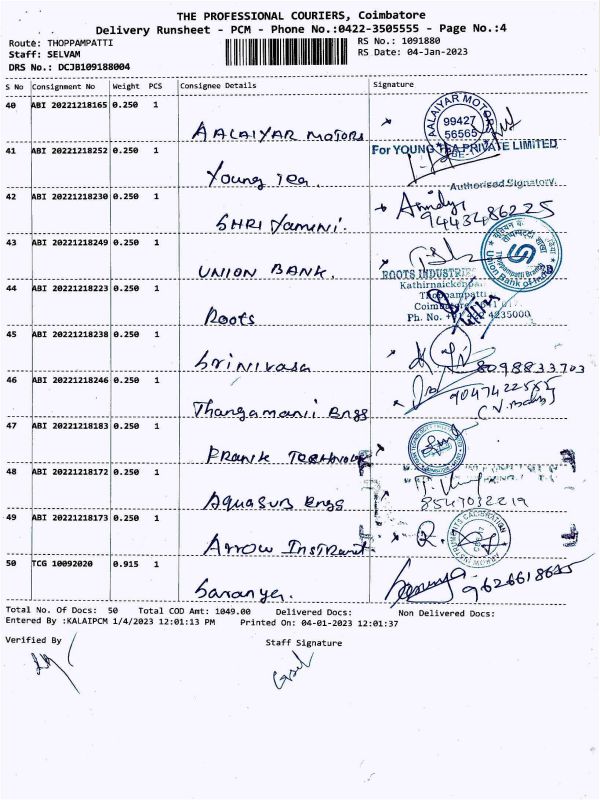 THE PROFESSIONAL COURIERS, Coimbatore
Delivery Runsheet - PCM - Phone No.:0422-3505555 - Page No.:4
Route: THOPPAMPATTI
RS No.: 1091880
Staff: SELVAM
RS Date: 04-Jan-2023
DRS No.: DCJB109188004
S No Consignment No Weight PCS Consignee Details Signature
40 ABI 20221218165 0.250 1
AALAIYAR MOTORS
AALAIYAR MOTORS 99427 56565
41 ABI 20221218252 0.250 1
For YOUNG TEA PRIVATE LIMITED
Young Tea.
Authorised Signatory.
42 ABI 20221218230 0.250 1
SHRI Yamini.
9443486225
43 ABI 20221218249 0.250 1
UNION BANK.
Thoppampatti Branch
Union Bank of India
44 ABI 20221218223 0.250 1
ROOTS INDUSTRIES
Kathirnaickenpa
Thoppampatti
Ph. No. +91 422 4235000
Roots
45 ABI 20221218238 0.250 1
Srinivasa
8098833703
46 ABI 20221218246 0.250 1
Thangamanii Engs
9047422555
47 ABI 20221218183 0.250 1
PRANK TECHNOLO
48 ABI 20221218172 0.250 1
Aquasub Engg
8547022219
49 ABI 20221218173 0.250 1
Arrow Instrument
ARROW INSTRUMENTS CALIBRATION
50 TCG 10092020 0.915 1
Saranya.
Saranya
9626618655
Total No. Of Docs: 50 Total COD Amt: 1049.00 Delivered Docs: Non Delivered Docs:
Entered By :KALAIPCM 1/4/2023 12:01:13 PM Printed On: 04-01-2023 12:01:37
Verified By Staff Signature